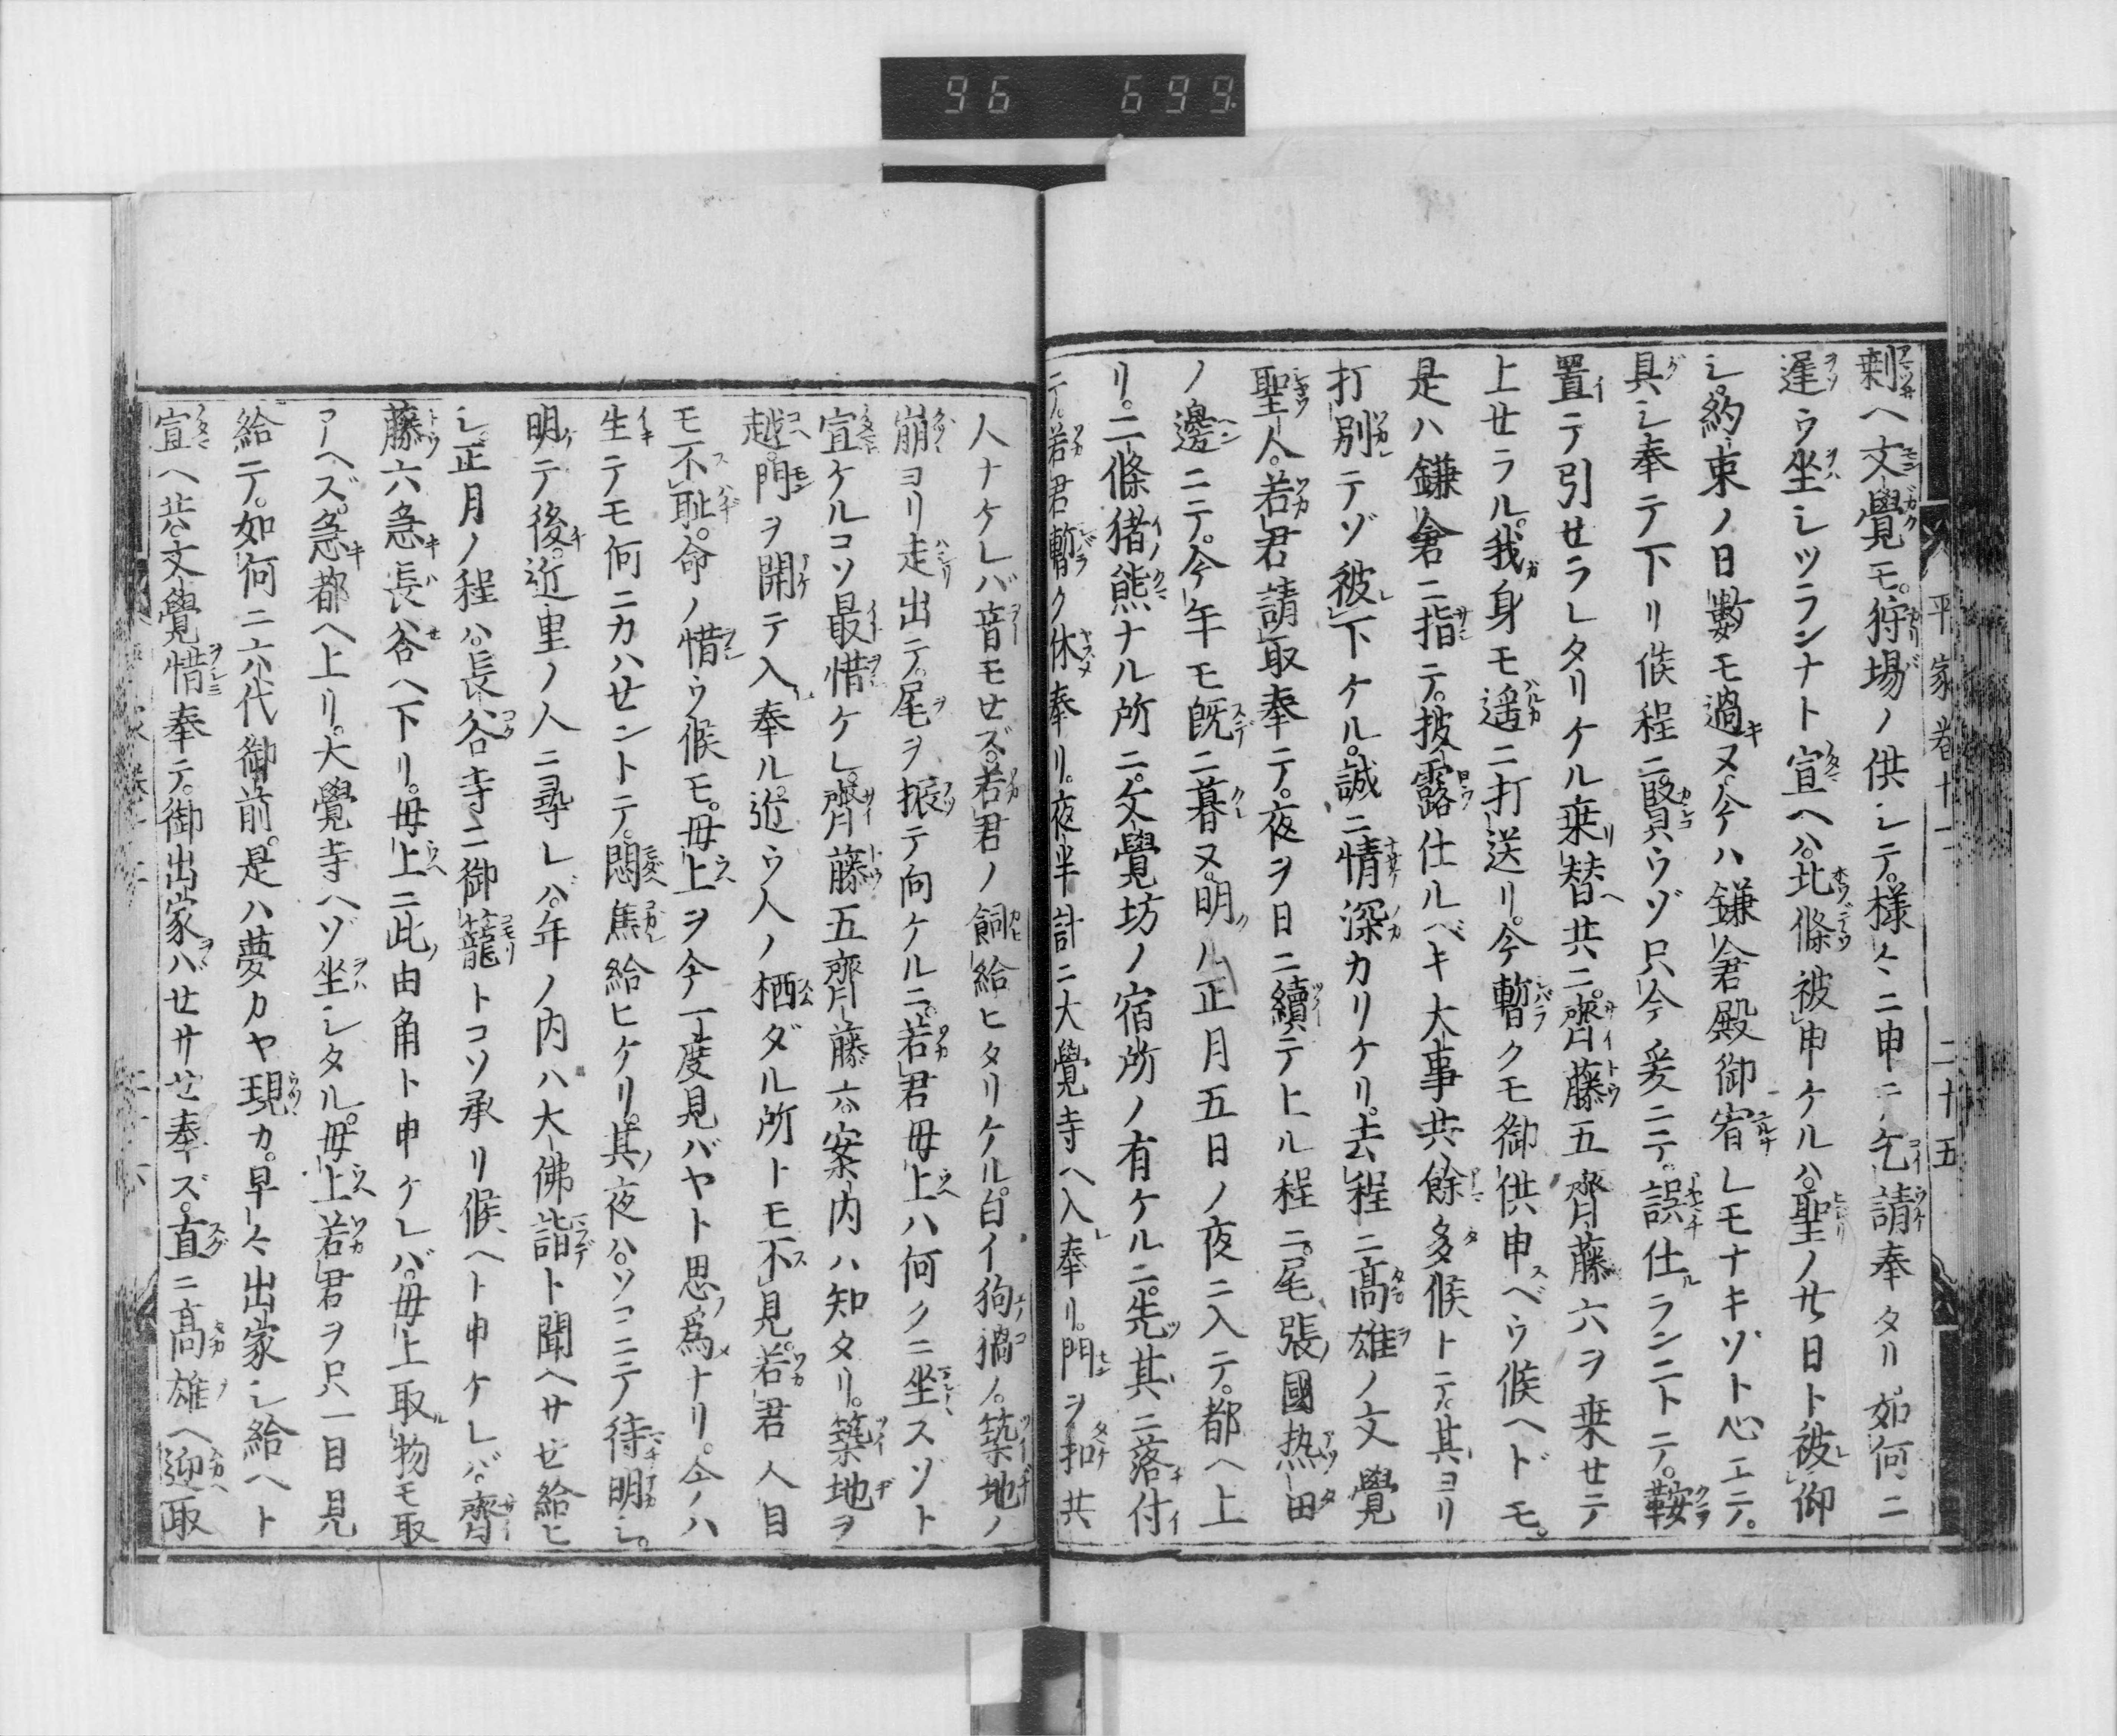 96 699
平家巻十二 二十五
剰ヘ文覺モ狩場ノ供シテ。様々ニ申テ乞請奉タリ如何ニ
遅ウ坐シツランナト宣ヘハ。北條被申ケルハ。聖ノ廿日ト被仰
シ。約束ノ日數モ過ヌ。今ハ鎌倉殿御宥レモナキゾト心エテ。
具シ奉テ下リ候程ニ賢ウゾ只今爰ニテ。誤仕ランニトテ。鞍
置テ引セラレタリケル乗替共ニ。齊藤五齊藤六ヲ乗セテ
上セラル。我身モ遥ニ打送リ。今暫クモ御供申ベウ候ヘドモ。
是ハ鎌倉ニ指テ。披露仕ルベキ大事共餘多候トテ。其ヨリ
打別テゾ被下ケル。誠ニ情深カリケリ。去程ニ高雄ノ文覺
聖人。若君請取奉テ。夜ヲ日ニ續テ上ル程ニ。尾張國熱田
ノ邊ニテ。今年モ既ニ暮ヌ。明ル正月五日ノ夜ニ入テ。都ヘ上
リ。二條猪熊ナル所ニ。文覺坊ノ宿所ノ有ケルニ。先其ニ落付
テ。若君暫ク休奉リ。夜半計ニ大覺寺ヘ入奉リ。門ヲ扣共
人ナケレバ音モセズ。若君ノ飼給ヒタリケル。白イ狗猧ノ。築地ノ
崩ヨリ走出テ。尾ヲ振テ向ケルニ。若君母上ハ何クニ坐スゾト
宣ケルコソ最惜ケレ。齊藤五齊藤六。案内ハ知タリ。築地ヲ
越。門ヲ開テ入奉ル。近ウ人ノ栖ダル所トモ不見。若君人目
モ不耻。命ノ惜ウ候モ。母上ヲ今一度見バヤト思爲ナリ。今ハ
生テモ何ニカハセントテ。悶焦給ヒケリ。其夜ハ。ソコニテ待明シ。
明テ後。近里ノ人ニ尋レバ。年ノ内ハ大佛詣ト聞ヘサセ給ヒ
シ。正月ノ程ハ。長谷寺ニ御籠トコソ承リ候ヘト申ケレバ。齊
藤六急長谷ヘ下リ。母上ニ此由角ト申ケレバ。母上取物モ取
アヘズ。急都ヘ上リ。大覺寺ヘゾ坐シタル。母上若君ヲ只一目見
給テ。如何ニ六代御前。是ハ夢カヤ現カ。早々出家シ給ヘト
宣ヘ共。文覺惜奉テ。御出家ハセサセ奉ズ。直ニ高雄ヘ迎取